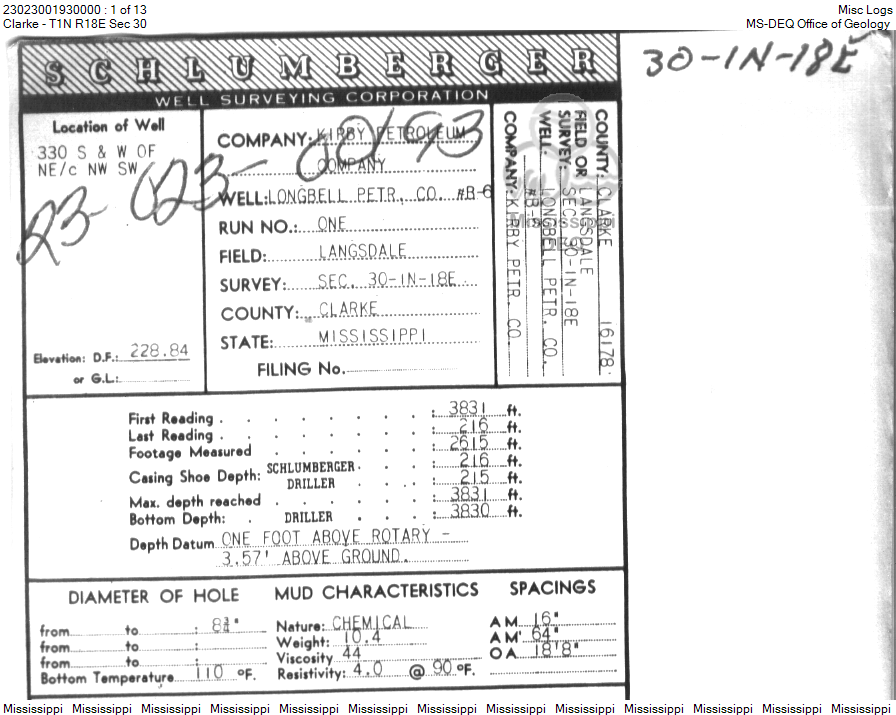 23023001930000 : 1 of 13
Misc Logs
Clarke - T1N R18E Sec 30
MS-DEQ Office of Geology
30-1N-18E
SCHLUMBERGER
WELL SURVEYING CORPORATION
Location of Well
330 S & W OF
NE/c NW SW
23-023-00193
Elevation: D.F.: 228.84
or G.L.:
COMPANY: KIRBY PETROLEUM
COMPANY
WELL: LONGBELL PETR., CO. #B-6
RUN NO.: ONE
FIELD: LANGSDALE
SURVEY: SEC. 30-1N-18E
COUNTY: CLARKE
STATE: MISSISSIPPI
FILING No.
COUNTY: CLARKE 16178
FIELD OR LANGSDALE
SURVEY: SEC. 30-1N-18E
WELL: LONGBELL PETR. CO.
#B-6
COMPANY: KIRBY PETR. CO.
First Reading . . . . . . . . : 3831 ft.
Last Reading . . . . . . . . : 216 ft.
Footage Measured . . . . . . : 2615 ft.
Casing Shoe Depth: SCHLUMBERGER . . . : 216 ft.
DRILLER . . . : 215 ft.
Max. depth reached . . . . . . : 3831 ft.
Bottom Depth: . DRILLER . . . : 3830 ft.
Depth Datum ONE FOOT ABOVE ROTARY -
3.57' ABOVE GROUND.
DIAMETER OF HOLE
from to : 8¾"
from to :
from to :
Bottom Temperature 110 °F.
MUD CHARACTERISTICS
Nature: CHEMICAL
Weight: 10.4
Viscosity 44
Resistivity: 4.0 @ 90 °F.
SPACINGS
AM 16"
AM' 64"
OA 18'8"
Mississippi Mississippi Mississippi Mississippi Mississippi Mississippi Mississippi Mississippi Mississippi Mississippi Mississippi Mississippi Mississippi